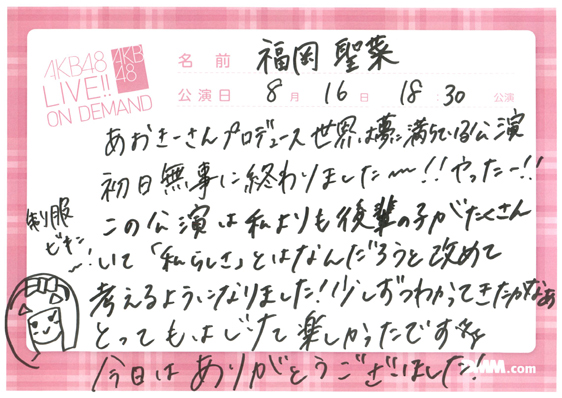 AKB48
LIVE!!
ON DEMAND
AKB
48
名前 福岡 聖菜
公演日 8月 16日 18:30 公演
あおきーさんプロデュース世界は夢に満ちている公演
初日無事に終わりました〜!!やったー!!
この公演は私よりも後輩の子がたくさん
いて「私らしさ」とはなんだろうと改めて
考えるようになりました!少しずつわかってきたかなぁ
とってもはじけて楽しかったです☆☆
今日はありがとうございました!
制服
ビギン
〜!
DMM.com